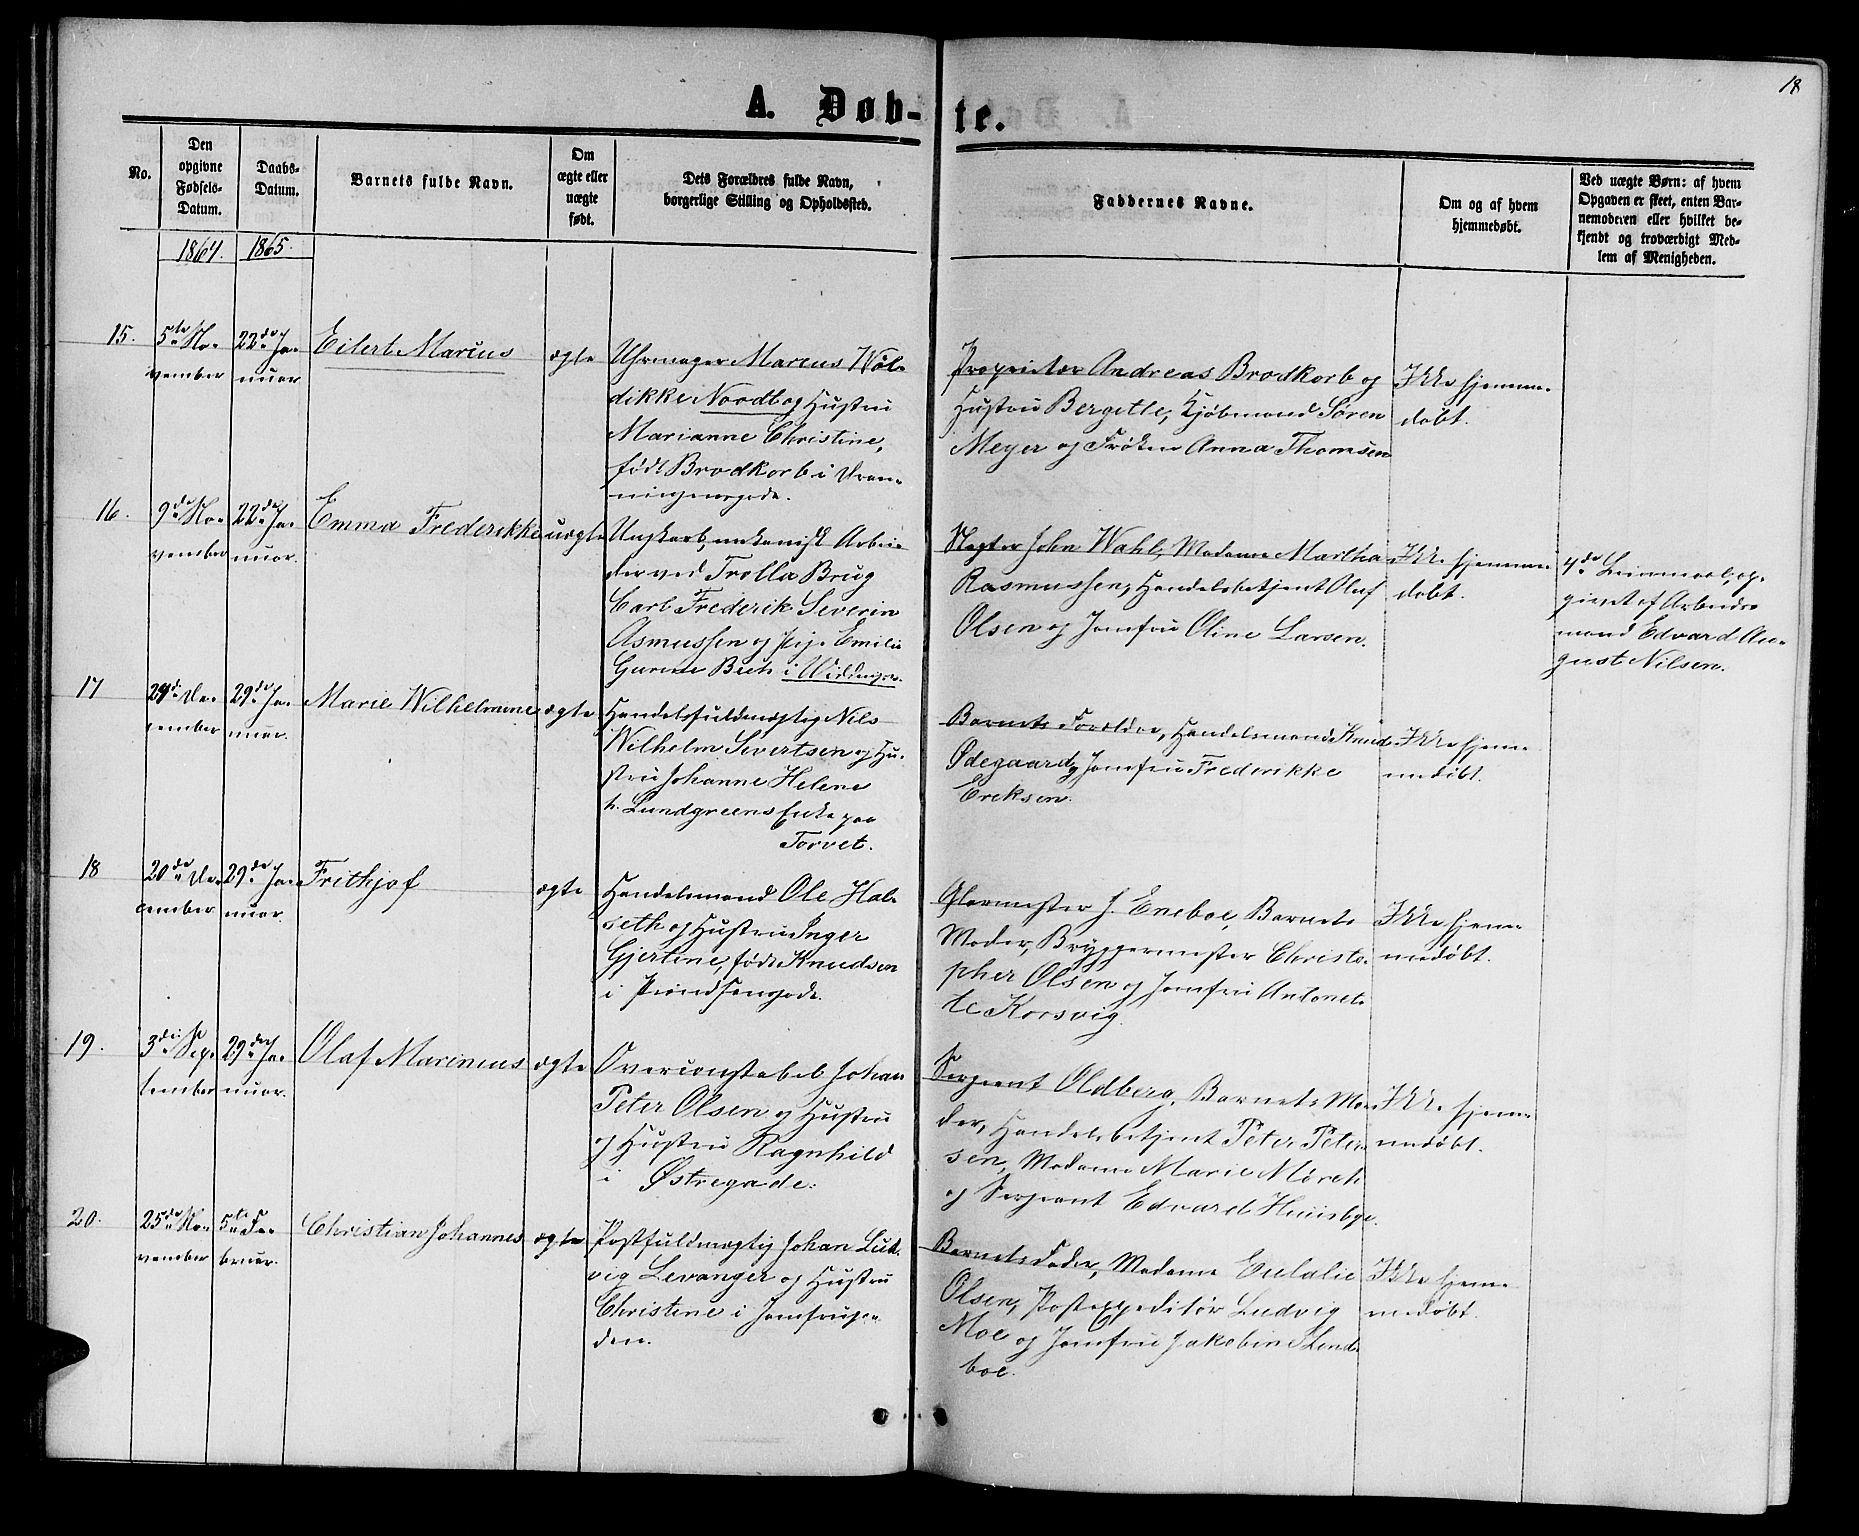 18
A. Døb- te.
No.
Den opgivne Fødsels-Datum.
Daabs-Datum.
Barnets fulde Navn.
Om ægte eller uægte født.
Dets Forældres fulde Navn, borgerlige Stilling og Opholdssted.
Faddernes Navne.
Om og af hvem hjemmedøbt.
Ved uægte Børn: af hvem Opgaven er skeet, enten Barnemoderen eller hvilket bekjendt og troværdigt Medlem af Menigheden.
1864. 1865.
15.
5te No-
vember
22de Ja-
nuar
Eilert Marius
ægte
Uhrmager Marcus Wøl-
dikke Nordb og Hustru
Marianne Christine,
født Brodkorb i Dron-
ningensgade.
Proprietær Andreas Brodkorb og
Hustru Bergitte, Kjøbmand Sören
Meyer og Frøken Anna Thomsen
Ikke hjemme-
døbt.
16.
9de No-
vember
22de Ja-
nuar.
Emma Frederikke
uægte
Ungkarl, mekanisk Arbei-
der ved Trolla Brug
Carl Frederik Severin
Asmussen og Pige Emilie
Gurine Bech i
Slagter John Wahl, Madame Martha
Rasmussen, Handelsbetjent Oluf
Olsen og Jomfru Oline Larsen.
Ikke hjemme-
døbt.
4de Leiermaal, op-
givet af Arbeids-
mand Edvard Au-
gust Nilsen.
17
24de De-
cember
29de Ja-
nuar.
Marie Wilhelmine
ægte
Handelsfuldmægtig Nils
Wilhelm Sivertsen og Hu-
stru Johanne Helene
h. Lundgreens Enke paa
Torvet.
Barnets Forældre, Handelsmand Knud
Ødegaard, Jomfru Frederikke
Ereksen.
Ikke hjem-
medøbt.
18
20de De-
cember
29de Ja-
nuar.
Frithjof
ægte
Handelsmand Ole Hal-
seth og Hustru Inger
Gjertine, født Knudsen
i Prindsensgade.
Glarmester J. Eneboe, Barnets
Moder, Bryggermester Christo-
pher Olsen og Jomfru Antonet-
te Korsvig.
Ikke hjem-
medøbt.
19.
3die Sep-
tember
29de Ja-
nuar.
Olaf Marinius
ægte
Overconstabel Johan
Peter Olsen og Hustru
og Hustru Ragnhild
i Østregade.
Sergeant Oldberg, Barnets Mo-
der, Handelsbetjent Peter Peter-
sen, Madame Marie Mørch
og Sergeant Edvard Huusbye.
Ikke hjem-
medøbt.
20.
25de No-
vember
5te Fe-
bruar.
Christian Johannes
ægte
Postfuldmægtig Johan Lud-
vig Levanger og Hustru
Christine i Jomfruga-
den.
Barnets Fader, Madame Eulalie
Olsen, Postexpeditör Ludvig
Moe og Jomfru Jakobine Lind-
boe.
Ikke hjem-
medøbt.